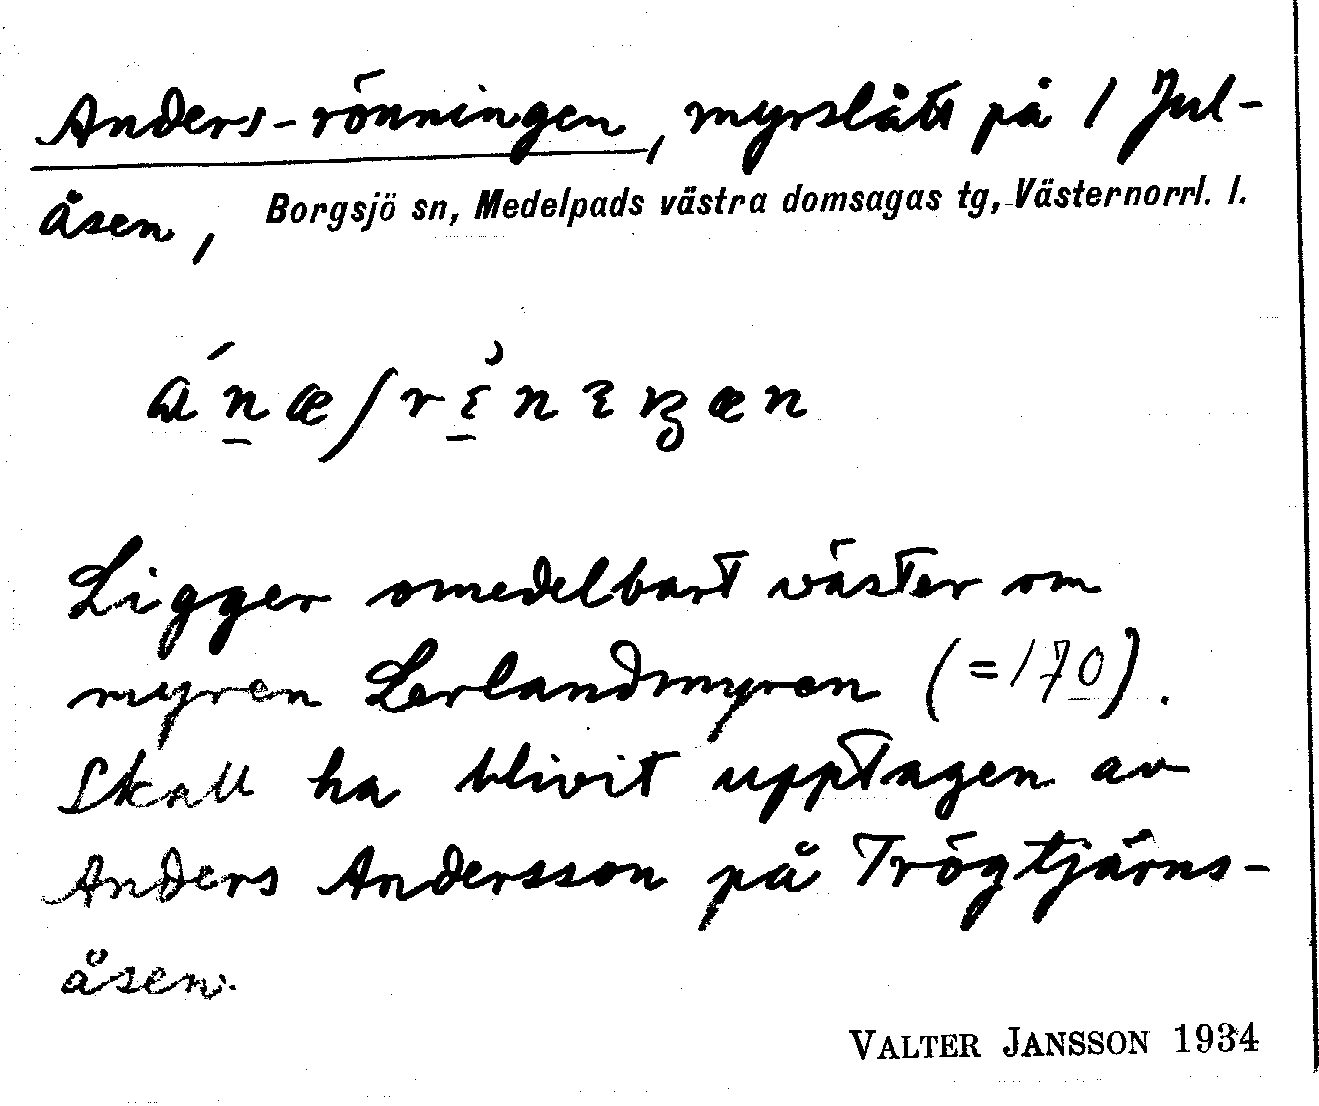 Anders-rönningen, myrslått på 1 Jul-
åsen, Borgsjö sn, Medelpads västra domsagas tg, Västernorrl. l.
Ligger omedelbart väster om
myren Lerlandsmyren (=170).
Skall ha blivit upptagen av
Anders Andersson på Trögtjärns-
åsen.
VALTER JANSSON 1934